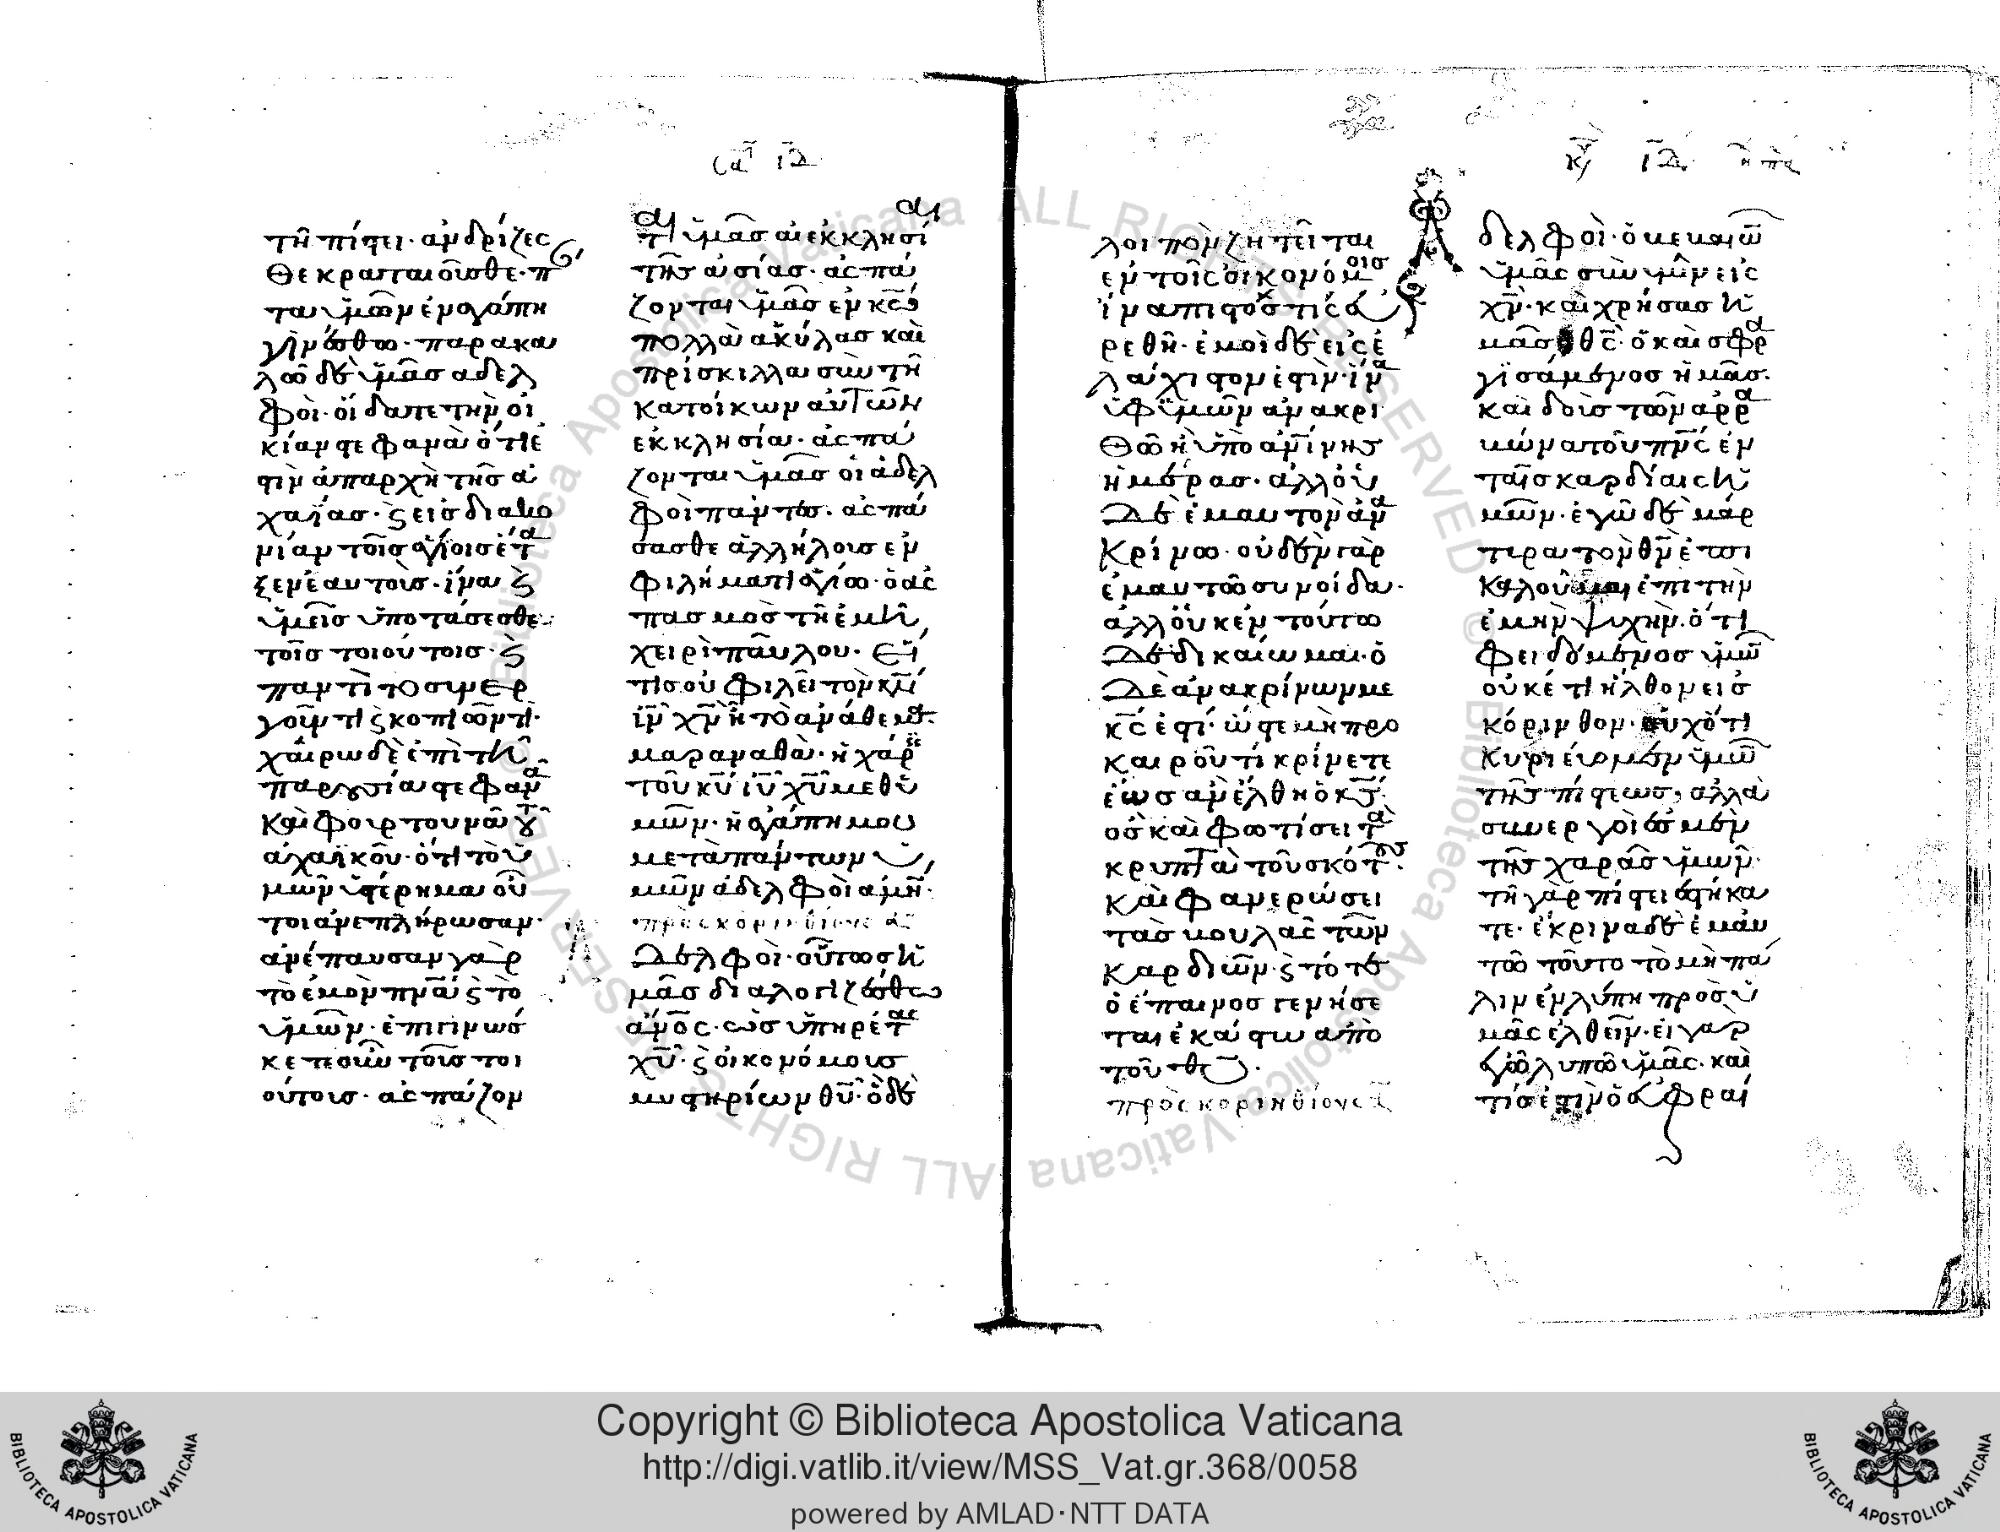 Σα ιδ
τῆ πίστει· ἀνδρίζες
θε κραταιοῦσθε· π
τα ὑμῶν ἐν ἀγάπη
γινέσθω· παρακα
λῶ δὲ ὑμᾶς ἀδελ
φοὶ· οἴδατε τὴν οἰ
κίαν στεφανᾶ ὅτι ἐ
στὶν ἀπαρχὴ τῆς ἀ
χαΐας· ϗ εἰς διακο
νίαν τοῖς ἁγίοις ἔτα
ξεν ἑαυτοὺς· ἵνα ϗ
ὑμεῖς ὑποτάσεσθε
τοῖς τοιούτοις· ϗ
παντὶ τὸ συνερ
γοῦντι ϗ κοπιῶντι·
χαίρω δὲ ἐπὶ τῆ
παρουσία στεφανᾶ
καὶ φουρτουνάτου
ἀχαϊκοῦ· ὅτι τὸ ὑ
μῶν ὑστέρημα οὗ
τοι ἀνεπλήρωσαν·
ἀνέπαυσαν γὰρ
τὸ ἐμὸν πνᾶ ϗ τὸ
ὑμῶν· ἐπιγινώσ
κετε οὖν τοῖς τοι
ούτοις· ἀσπάζον
ται ὑμᾶς αἱ ἐκκλησί
τῆς ἀσίας· ἀσπά
ζονται ὑμᾶς ἐν κω
πολλὰ ἀκύλας καὶ
πρίσκιλλα σὺν τῆ
κατοίκων αὐτῶν
ἐκκλησία· ἀσπά
ζονται ὑμᾶς οἱ ἀδελ
φοὶ πάντες· ἀσπά
σασθε ἀλλήλους ἐν
φιλήματι ἁγίω· ὁ ἀσ
πασμὸς τῆ ἐμῆ
χειρὶ παύλου· εἴ
τις οὐ φιλεῖ τὸν κν
ιν χν ἤτο ἀνάθεμα·
μαραναθὰ· ἡ χάρις
τοῦ κυ ιυ χυ μεθ ὑ
μῶν· ἡ ἀγάπη μου
μετὰ πάντων ὑ
μῶν ἀδελφοὶ ἀμήν·
πρὸς κορινθίους α
Δελφοὶ· οὕτως ἡ
μᾶς διαλογιζέσθω
ἄνος· ὡς ὑπηρέτας
χυ· ϗ οἰκονόμους
μυστηρίων θυ· ὃ δὲ
κυ ιδ
λοιπὸν ζητεῖται
ἐν τοῖς οἰκονόμοις
ἵνα πιστός τις εὑ
ρεθῆ· ἐμοὶ δὲ εἰς ἐ
λάχιστον ἐστὶν· ἵνα
ὑφ ὑμῶν ἀνακρι
θῶ ἢ ὑπὸ ἀνίνης
ἡμέρας· ἀλλ οὐ
δὲ ἐμαυτὸν ἀνα
κρίνω· οὐδὲν γὰρ
ἐμαυτῶ συνοίδα·
ἀλλ οὐκ ἐν τούτω
δεδικαίωμαι· ὁ
δὲ ἀνακρίνων με
κς ἐστί· ὥστε μὴ προ
καιροῦ τί κρίνετε
ἕως ἂν ἔλθη ὁ κς·
ὃς καὶ φωτίσει τὰ
κρυπτὰ τοῦ σκότους·
καὶ φανερώσει
τὰς βουλὰς τῶν
καρδιῶν· ϗ τότε
ὁ ἔπαινος γενήσε
ται ἑκάστω ἀπὸ
τοῦ θυ·
πρὸς κορινθίους
Ἀδελφοὶ· ὁ βεβαιῶ
ὑμᾶς σὺν ὑμῖν εἰς
χν· καὶ χρήσας ἡ
μᾶς θς· ὁ καὶ σφρα
γισάμενος ἡμᾶς·
καὶ δοὺς τὸν ἀρρα
βῶνα τοῦ πνς ἐν
ταῖς καρδίαις ἡ
μῶν· ἐγὼ δὲ μάρ
τυρα τὸν θν ἔτσι
καλοῦμαι ἐπὶ τὴν
ἐμὴν ψυχὴν· ὅτι
φειδόμενος ὑμῶν
οὐκέτι ἦλθον εἰς
κόρινθον· οὐχ ὅτι
κυριεύομεν ὑμῶν
τῆς πίστεως, ἀλλὰ
συνεργοὶ ἐσμὲν
τῆς χαρᾶς ὑμῶν·
τῆ γὰρ πίστει ἑστήκα
τε· ἔκρινα δὲ ἐμαυ
τῶ τοῦτο τὸ μὴ πά
λιν ἐν λύπη πρὸς ὑ
μᾶς ἐλθεῖν· εἰ γὰρ
ἐγὼ λυπῶ ὑμᾶς· καὶ
τίς ἐστιν ὁ εὐφραί
Copyright © Biblioteca Apostolica Vaticana
http://digi.vatlib.it/view/MSS_Vat.gr.368/0058
powered by AMLAD·NTT DATA